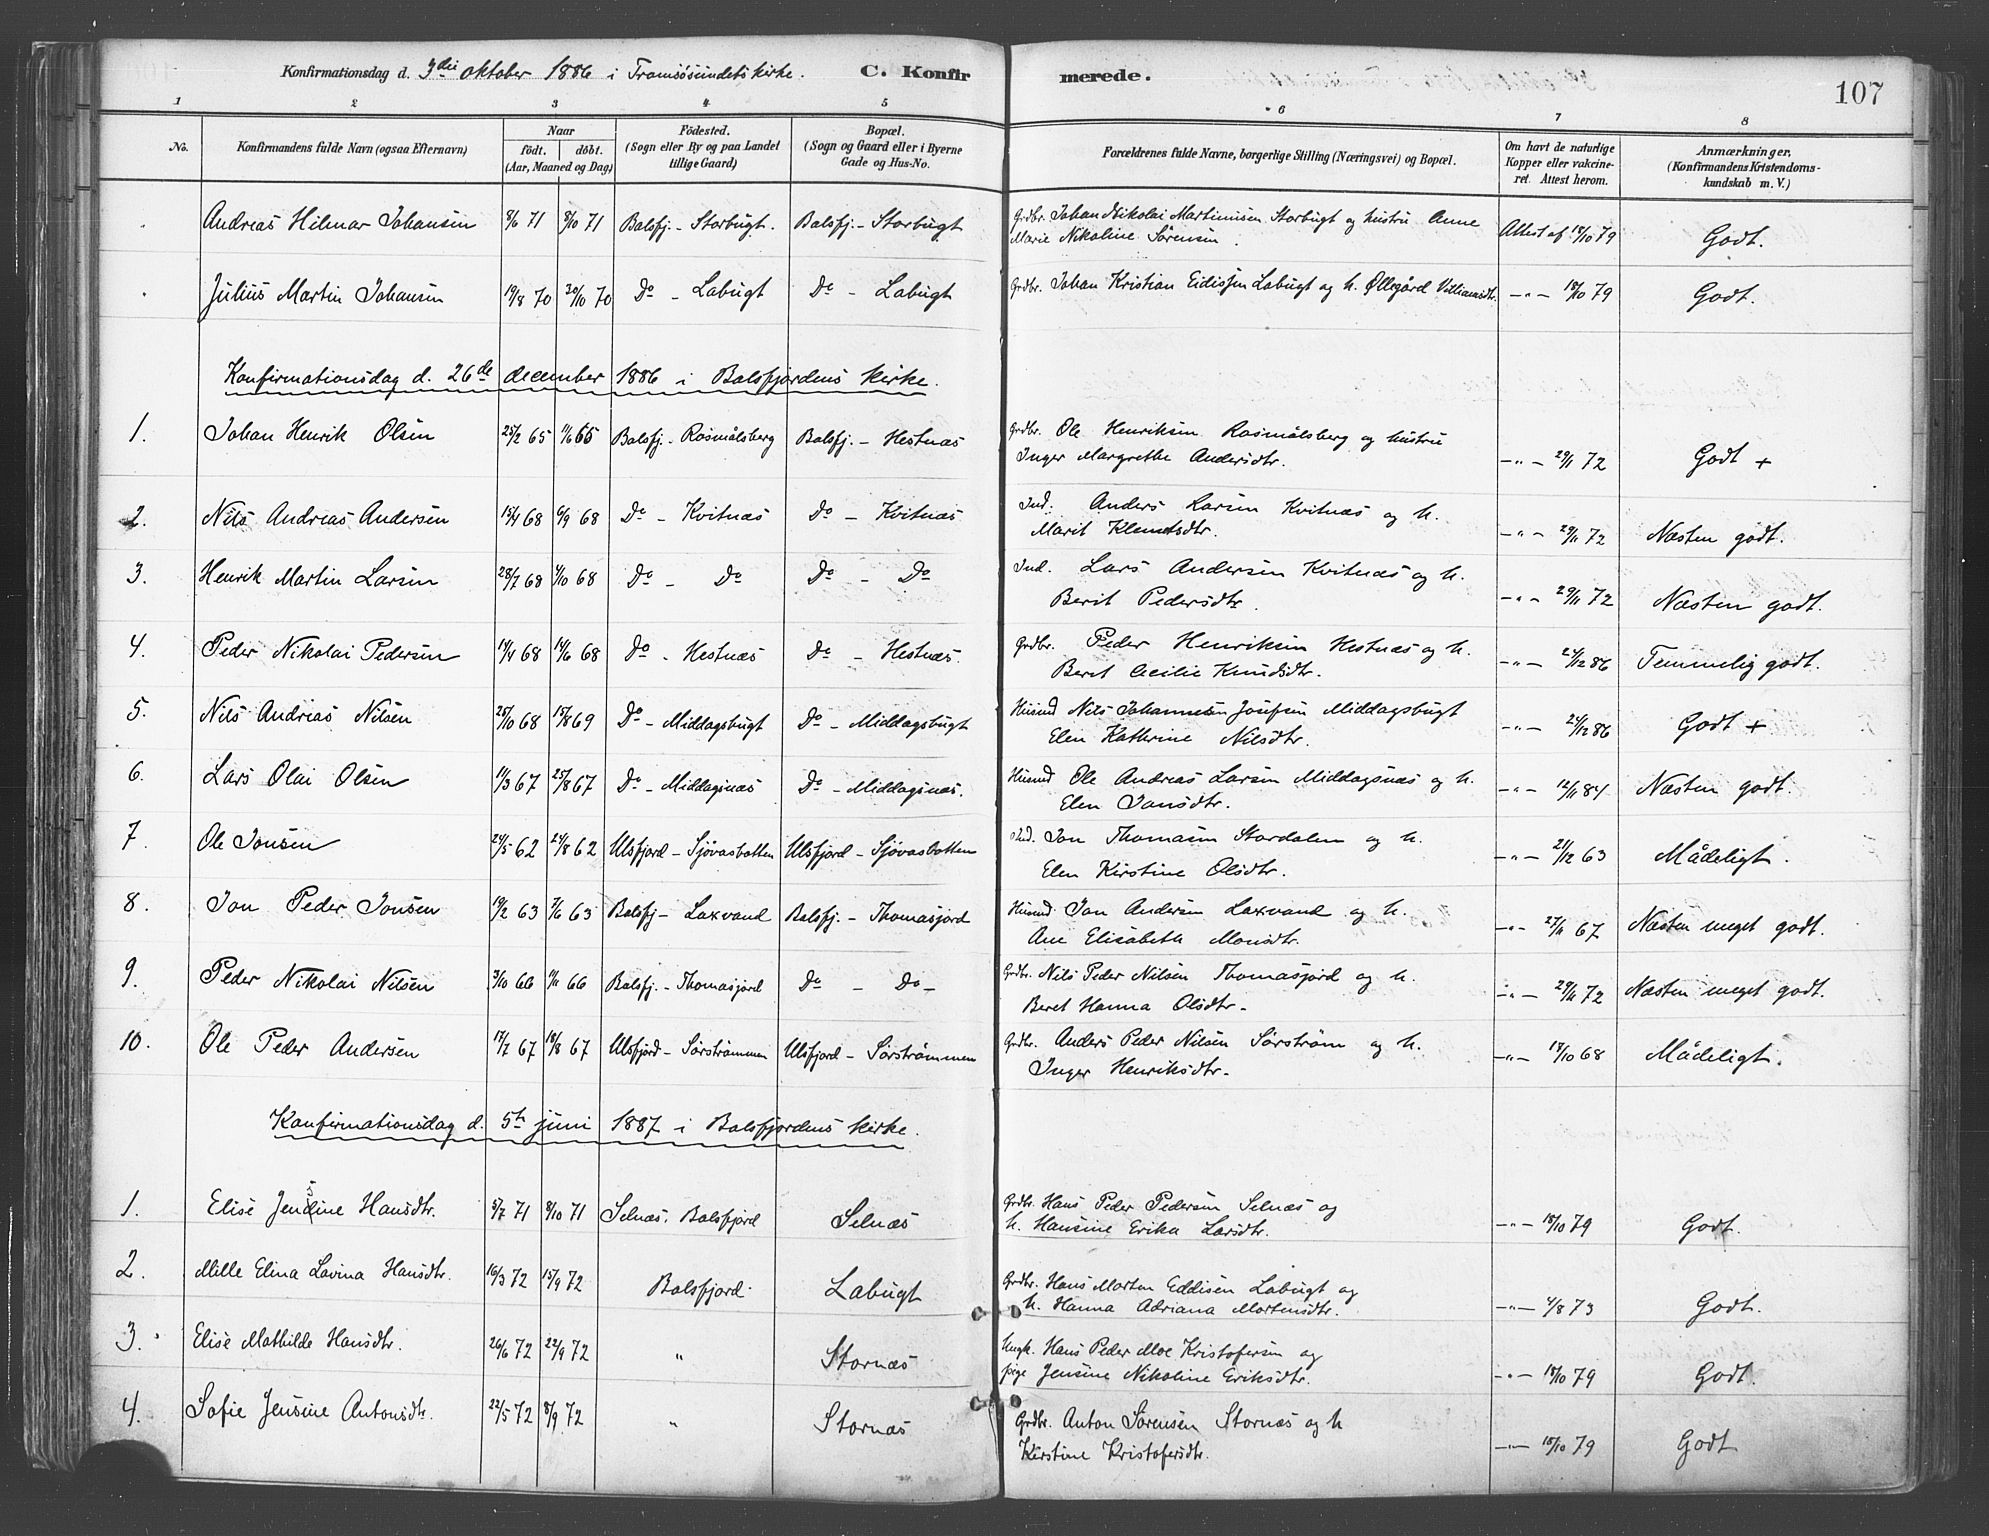 Konfirmationsdag d. 3die oktober 1886 i Tromsösundets kirke. C. Konfirmerede. 107
1 2 3 4 5 6 7 8
No. Konfirmandens fulde Navn (ogsaa Efternavn) Naar födt. döbt. (Aar, Maaned og Dag) Födested. (Sogn eller By og paa Landet tillige Gaard) Bopæl. (Sogn og Gaard eller i Byerne Gade og Hus-No. Forældrenes fulde Navne, borgerlige Stilling (Næringsvei) og Bopæl. Om havt de naturlige Kopper eller vakcineret. Attest herom. Anmærkninger. (Konfirmandens Kristendomskundskab m. V.)
Andreas Hilmar Johansen 8/6 71 8/10 71 Balsfj. - Storbugt. Balsfj. - Storbugt Grdbr. Johan Nikolai Martinusen Storbugt og hustru Anne Attest af 18/10 79 Godt.
Marie Nikoline Sørensen.
Julius Martin Johansen 19/8 70 30/10 70 Do - Labugt Do - Labugt Grdbr. Johan Kristian Edissen Labugt og h. Øllegård Villiamsdtr. -"- 18/10 79 Godt.
Konfirmationsdag d. 26de december 1886 i Balsfjordens kirke.
1. Johan Henrik Olsen 25/2 65 11/6 65 Balsfj. - Rosmålsberg Balsfj. - Hestnæs Grdbr. Ole Henriksen Rosmålsberg og hustru
Inger Margrethe Andersdtr. -"- 29/11 72 Godt +
2. Nils Andreas Andersen 15/4 68 6/9 68 Do - Kvitnæs Do - Kvitnæs Ind. Anders Larsen Kvitnæs og h.
Marit Klemetsdtr. -"- 29/11 72 Næsten godt.
3. Henrik Martin Larsen 28/7 68 4/10 68 Do - Do Do - Do Ind. Lars Andersen Kvitnæs og h.
Berit Pedersdtr. -"- 29/11 72 Næsten godt.
4. Peder Nikolai Pedersen 14/4 68 14/6 68 Do - Hestnæs Do - Hestnæs. Grdbr. Peder Henriksen Hestnæs og h.
Beret Cecilie Knudsdtr. -"- 24/12 86 Temmelig godt.
5. Nils Andreas Nilsen 25/10 68 15/8 69 Do - Middagsbugt Do - Middagsbugt Husmd Nils Johannesen Josefsen Middagsbugt
Elen Kathrine Nilsdtr. -"- 24/12 86 Godt +
6. Lars Olai Olsen 11/3 67 25/8 67 Do - Middagsnæs Do - Middagsnæs. Husmd Ole Andreas Larsen Middagsnæs og h.
Elen Jonsdtr. -"- 12/11 84 Næsten godt.
7. Ole Jonsen 24/5 62 24/8 62 Ulsfjord - Sjövasbotten Ulsfjord - Sjövasbotten Ind. Jon Thomasen Stordalen og h.
Elen Kirstine Olsdtr. -"- 21/12 63 Mådeligt.
8. Jon Peder Jonsen 19/2 63 7/6 63 Balsfj - Laxvand Balsfj. - Thomasjord Husmd Jon Andersen Laxvand og h.
Ane Elisabeth Monsdtr. -"- 27/11 67 Næsten meget godt.
9. Peder Nikolai Nilsen 3/10 66 11/11 66 Balsfj. - Thomasjord Do - Do - Grdbr. Nils Peder Nilsen Thomasjord og h.
Beret Hanna Olsdtr. - -"- 29/11 72 Næsten meget godt.
10. Ole Peder Andersen 17/7 67 18/8 67 Ulsfjord - Sörströmmen Ulsfjord - Sörströmmen Grdbr. Anders Peder Nilsen Sörström og h.
Inger Henriksdtr. -"- 18/10 68 Mådeligt.
Konfirmationsdag d. 5te juni 1887 i Balsfjordens kirke.
1. Elise Jensine Hansdtr. 5/7 71 8/10 71 Selnæs. Balsfjord Selnæs Grdbr. Hans Peder Pedersen Selnæs og
h. Hansine Erika Larsdtr. -"- 18/10 79 Godt.
2. Mille Elina Lavina Hansdtr. 16/3 72 15/9 72 Balsfjord. Labugt Grdbr. Hans Morten Eddisen Labugt og
h. Hanna Adriana Mortensdtr. -"- 4/8 73 Godt.
3. Elise Mathilde Hansdtr. 26/6 72 22/9 72 " Stornæs Ungk. Hans Peder Moe Kristofersen og
pige Jensine Nikoline Eriksdtr. -"- 18/10 79 Godt.
4. Sofie Jensine Antonsdtr. 22/5 72 8/9 72 " Stornæs Grdbr. Anton Sørensen Stornæs og h
Kirstine Kristofersdtr. -"- 18/10 79 Godt